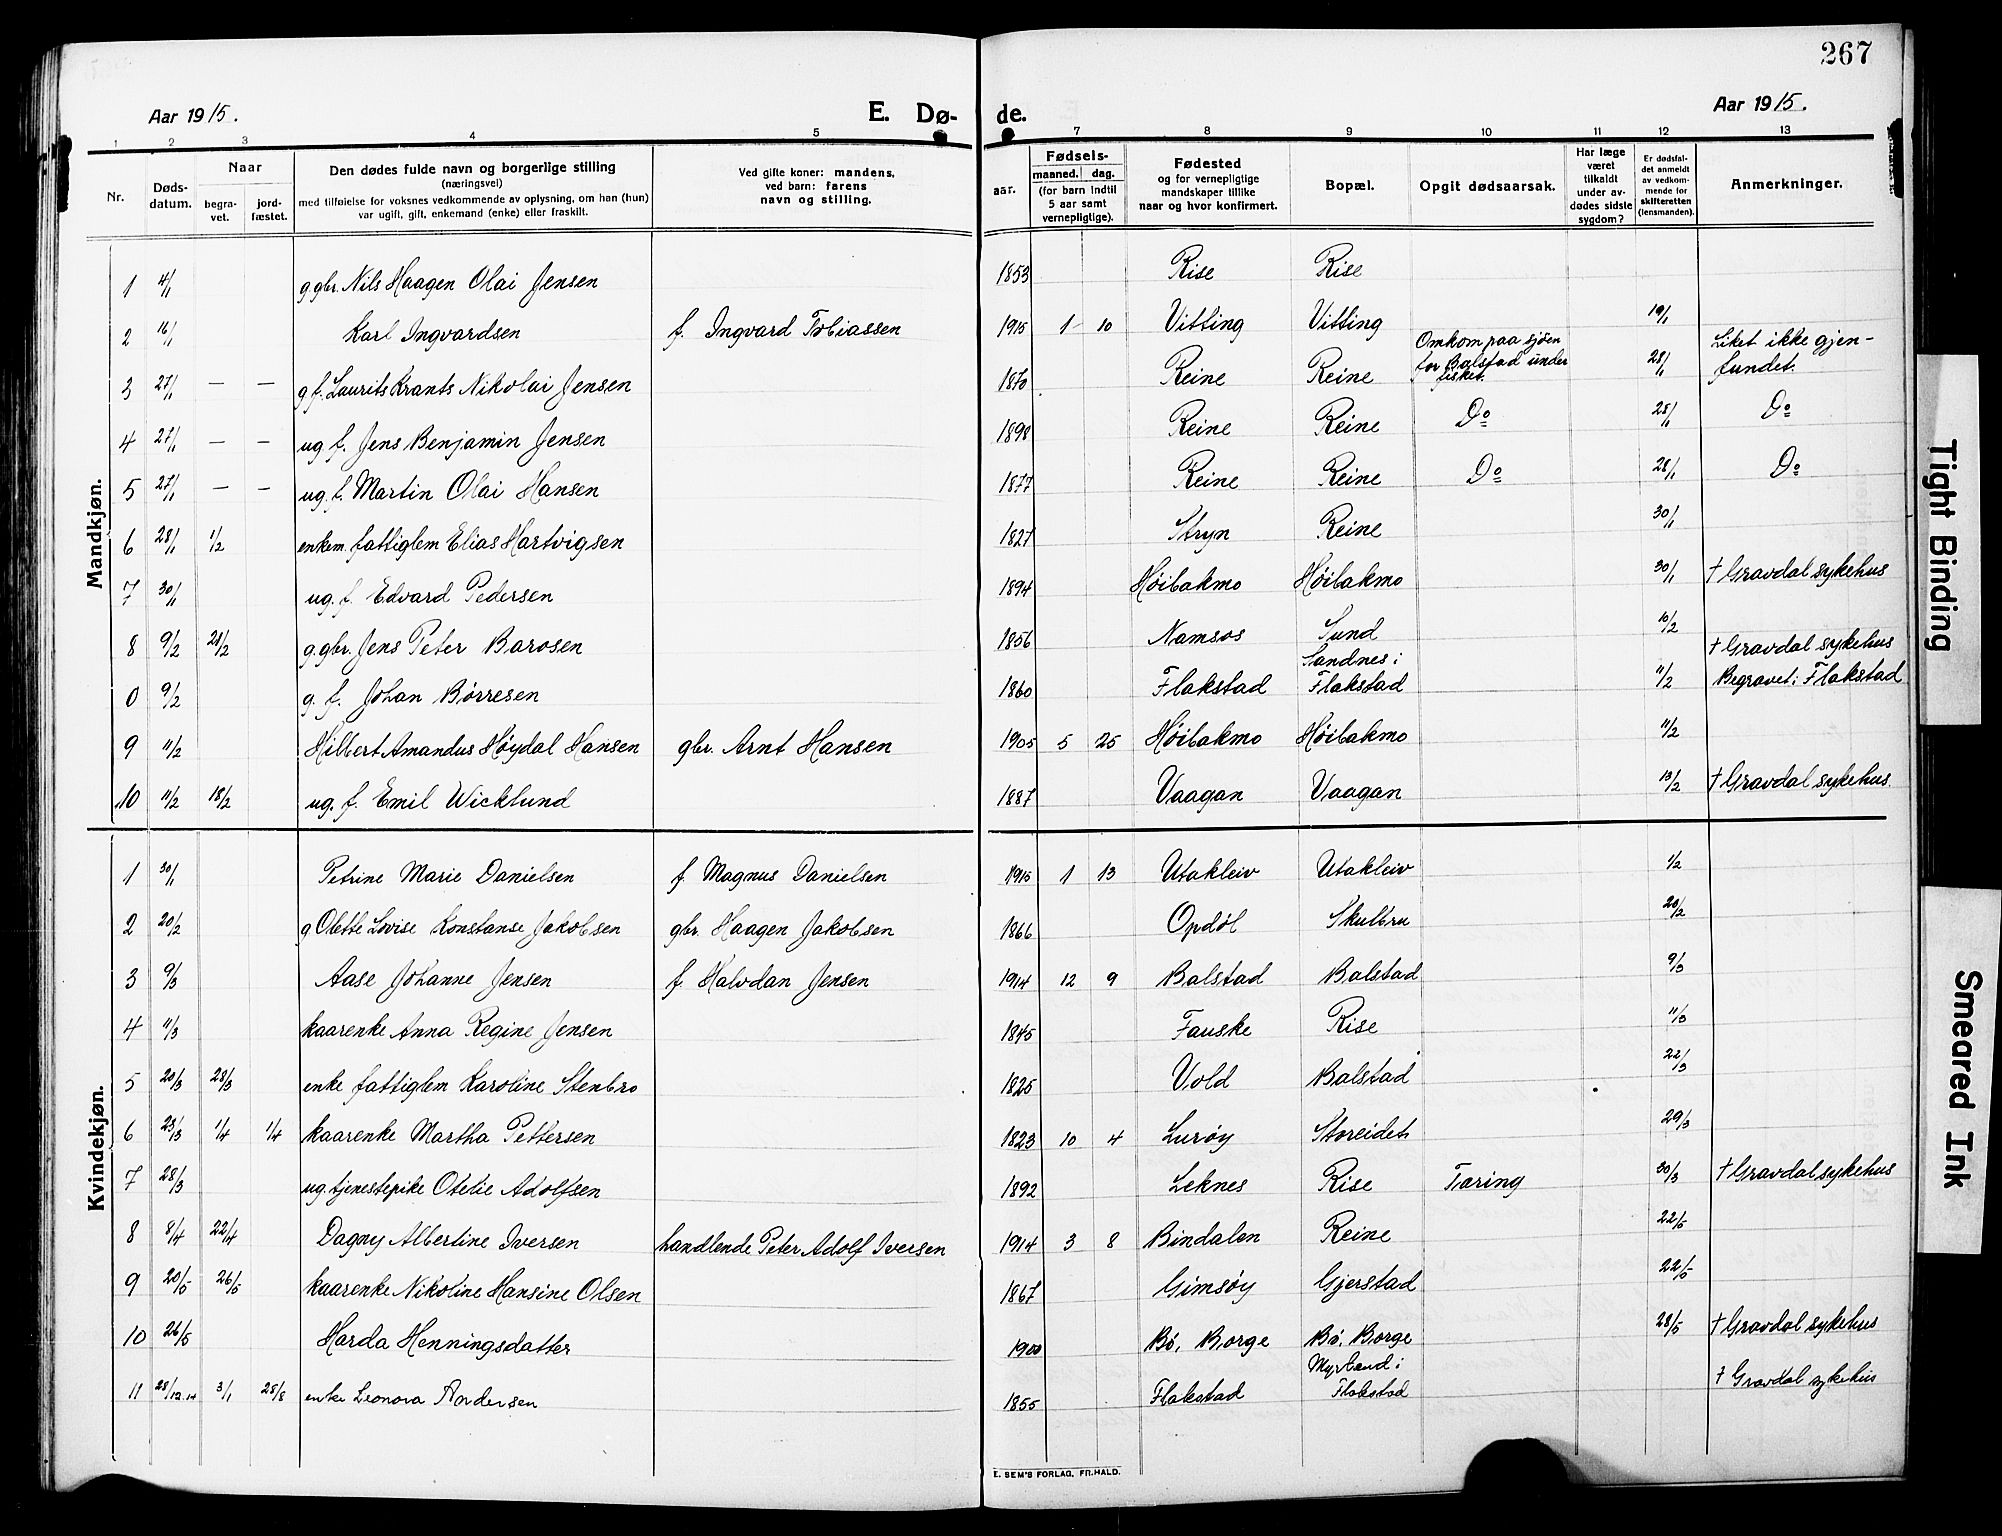 267
Aar 1915.
E. Dø-
de.
Aar 1915.
1 2 3 4 5 7 8 9 10 11 12 13
Nr.
Døds-
datum.
Naar
begra-
vet.
jord-
fæstet.
Den dødes fulde navn og borgerlige stilling
(næringsvei)
med tilføielse for voksnes vedkommende av oplysning, om han (hun)
var ugift, gift, enkemand (enke) eller fraskilt.
Ved gifte koner: mandens,
ved barn: farens
navn og stilling.
aar.
Fødsels-
maaned. dag.
(for barn indtil
5 aar samt
vernepligtige).
Fødested
og for vernepligtige
mandskaper tillike
naar og hvor konfirmert.
Bopæl.
Opgit dødsaarsak.
Har læge
været
tilkaldt
under av-
dødes sidste
sygdom?
Er dødsfal-
det anmeldt
av vedkom-
mende for
skifteretten
(lensmanden).
Anmerkninger.
Mandkjøn.
1 4/1 g gbr. Nils Haagen Olai Jensen 1853 Rise Rise
2 16/1 Karl Ingvardsen f. Ingvard Tobiassen 1915 1 10 Vitting Vitting 19/1
3 27/1 — — g f. Laurits Krants Nikolai Jensen 1870 Reine Reine Omkom paa sjøen
for Balstad under
fisket. 28/1 Liket ikke gjen-
fundet.
4 27/1 — — ug. f. Jens Benjamin Jensen 1898 Reine Reine Do 28/1 Do
5 27/1 — — ug. f. Martin Olai Hansen 1877 Reine Reine Do 28/1 Do
6 28/1 1/2 enkem. fattiglem Elias Hartvigsen 1827 Stryn Reine 30/1
7 30/1 ug. f. Edvard Pedersen 1894 Høibakmo Høibakmo 30/1 † Gravdal sykehus
8 9/2 21/2 g. gbr. Jens Peter Barosen 1856 Namsos Sund 10/2
† Gravdal sykehus
0 9/2 g. f. Johan Børresen 1860 Flakstad Sandnes i
Flakstad 11/2 Begravet i Flakstad
9 11/2 Hilbert Amandus Høydal Hansen gbr. Arnt Hansen 1905 5 25 Høibakmo Høibakmo 11/2
10 11/2 18/2 ug. f. Emil Wicklund 1887 Vaagan Vaagan 13/2 † Gravdal sykehus.
Kvindekjøn.
1 30/1 Petrine Marie Danielsen f Magnus Danielsen 1915 1 13 Utakleiv Utakleiv 1/2
2 20/2 g Olette Lovise Konstanse Jakobsen gbr. Haagen Jakobsen 1866 Opdøl Skulbru 20/2
3 9/3 Aase Johanne Jensen f. Halvdan Jensen 1914 12 9 Balstad Balstad 9/3
4 11/3 kaarenke Anna Regine Jensen 1845 Fauske Rise 11/3
5 20/3 28/3 enke fattiglem Karoline Stenbro 1825 Vold Balstad 22/3
6 23/3 1/4 1/4 kaarenke Martha Pettersen 1823 10 4 Lurøy Storeidet 29/3
7 28/3 ug. tjenestepike Otelie Adolfsen 1892 Leknes Rise Tæring 30/3 † Gravdal sykehus
8 8/4 22/4 Dagny Albertine Iversen handlende Peter Adolf Iversen 1914 3 8 Bindalen Reine 22/5
9 20/5 26/5 kaarenke Nikoline Hansine Olsen 1867 Gimsøy Gjerstad 22/5
10 26/5 Harda Henningsdatter 1900 Bø, Borge Bø, Borge 28/5 † Gravdal sykehus
11 28/12.14 3/1 25/8 enke Leonora Andersen 1855 Flakstad Myrland i
Flakstad † Gravdal sykehus
E. SEM'S FORLAG, FR.HALD.
Tight Binding
Smeared Ink